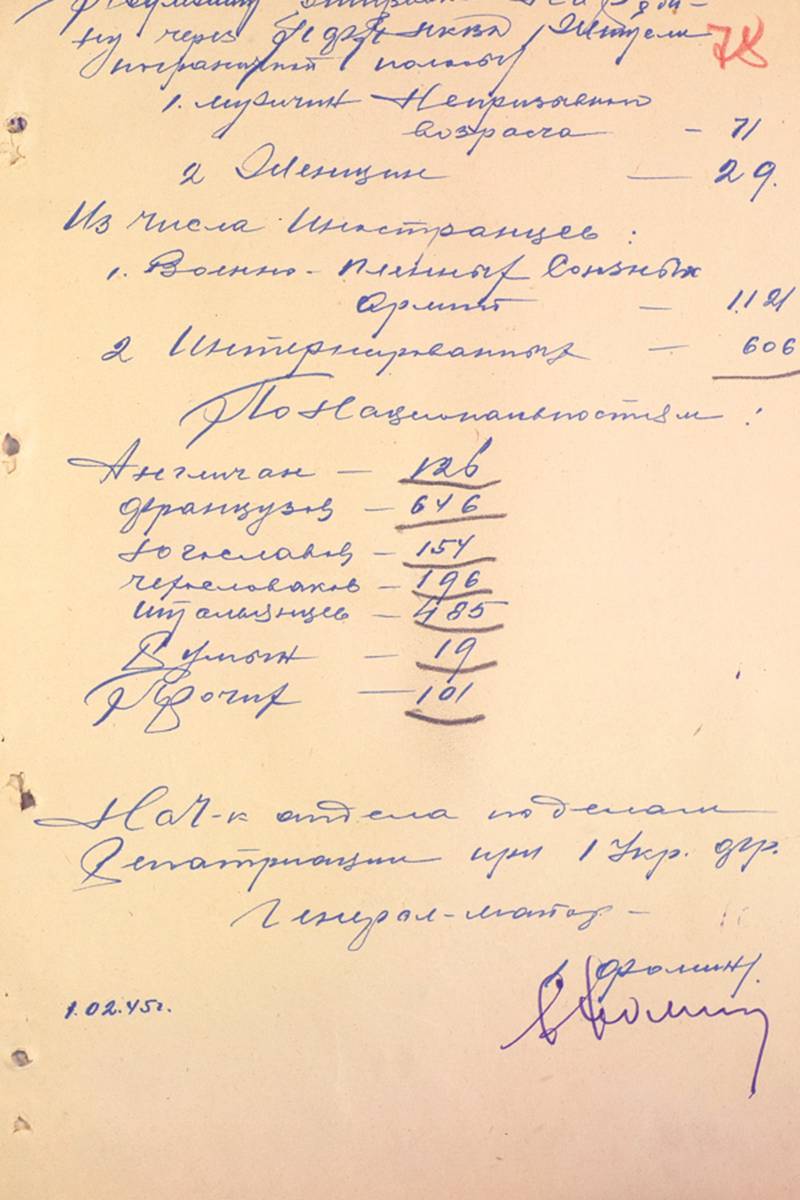 78
ну через НКВД Жители
пограничной полосы
1. мужчин Непризывного
возраста - 71
2 Женщин — 29.
Из числа Иностранцев:
1. Военно-пленных Союзных
Армий — 1121
2 Интернированных — 606
По Национальностям:
Англичан — 126
французов — 646
Югославов — 154
чехословаков — 196
итальянцев — 485
Румын — 19
Прочих — 101
Нач-к отдела по делам
Репатриации при 1 Укр. фр.
Генерал-майор -
/Фомин/.
1.02.45г.